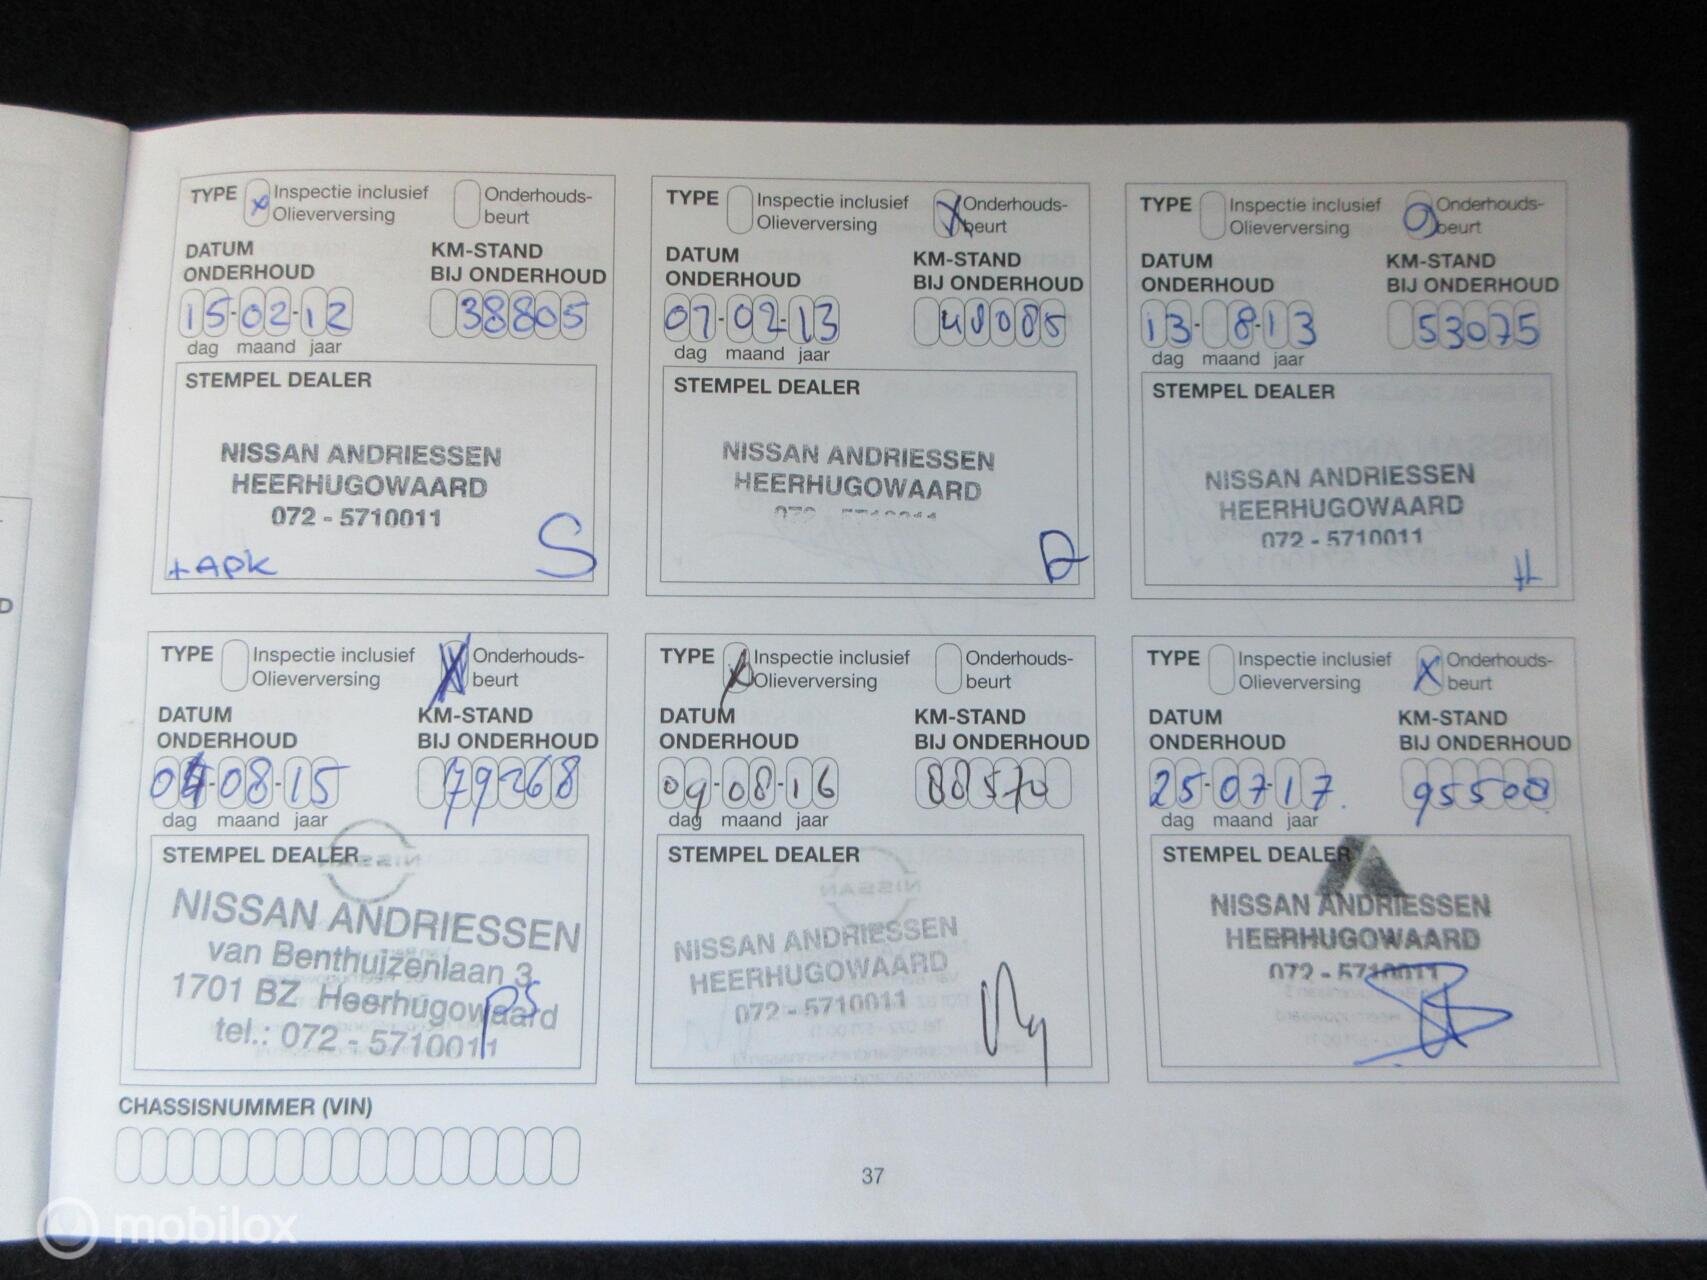 TYPE x Inspectie inclusief Olieverversing Onderhouds-beurt
DATUM ONDERHOUD KM-STAND BIJ ONDERHOUD
15-02-12 38805
dag maand jaar
STEMPEL DEALER
NISSAN ANDRIESSEN
HEERHUGOWAARD
072 - 5710011
+ APK S
TYPE Inspectie inclusief Olieverversing X Onderhouds-beurt
DATUM ONDERHOUD KM-STAND BIJ ONDERHOUD
07-02-13 48085
dag maand jaar
STEMPEL DEALER
NISSAN ANDRIESSEN
HEERHUGOWAARD
072 - 5710011
TYPE Inspectie inclusief Olieverversing Onderhouds-beurt
DATUM ONDERHOUD KM-STAND BIJ ONDERHOUD
13-8-13 53075
dag maand jaar
STEMPEL DEALER
NISSAN ANDRIESSEN
HEERHUGOWAARD
072 - 5710011
H
TYPE Inspectie inclusief Olieverversing X Onderhouds-beurt
DATUM ONDERHOUD KM-STAND BIJ ONDERHOUD
04-08-15 79268
dag maand jaar
STEMPEL DEALER
NISSAN ANDRIESSEN
van Benthuizenlaan 3
1701 BZ Heerhugowaard
tel.: 072 - 5710011
PS
TYPE x Inspectie inclusief Olieverversing Onderhouds-beurt
DATUM ONDERHOUD KM-STAND BIJ ONDERHOUD
09-08-16 88570
dag maand jaar
STEMPEL DEALER
NISSAN ANDRIESSEN
HEERHUGOWAARD
072 - 5710011
TYPE Inspectie inclusief Olieverversing X Onderhouds-beurt
DATUM ONDERHOUD KM-STAND BIJ ONDERHOUD
25-07-17. 95500
dag maand jaar
STEMPEL DEALER
NISSAN ANDRIESSEN
HEERHUGOWAARD
072 - 5710011
CHASSISNUMMER (VIN)
37
mobilox